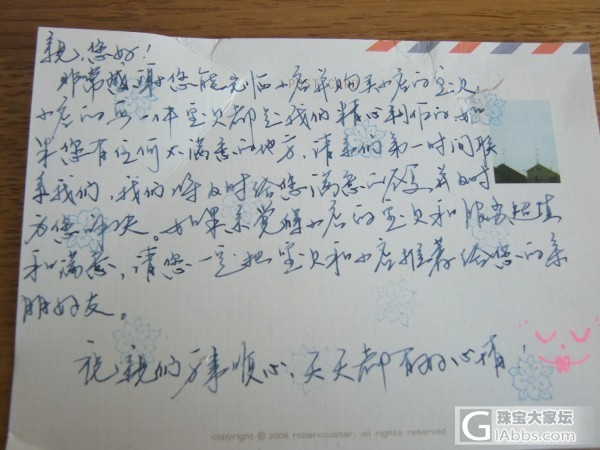 亲，您好！
非常感谢您能光临小店并购买小店的宝贝，
小店的每一件宝贝都是我们精心制作的 如
果您有任何不满意的地方，请亲们第一时间联
系我们，我们将及时给您满意的答复并及时
为您解决。如果亲觉得小店的宝贝和服务超值
和满意，请您一定把宝贝和小店推荐给您的亲
朋好友。
祝亲们万事顺心、天天都有好心情！
copyright © 2008 rollercoaster. all rights reserved
珠宝大家坛
lAbbs.com